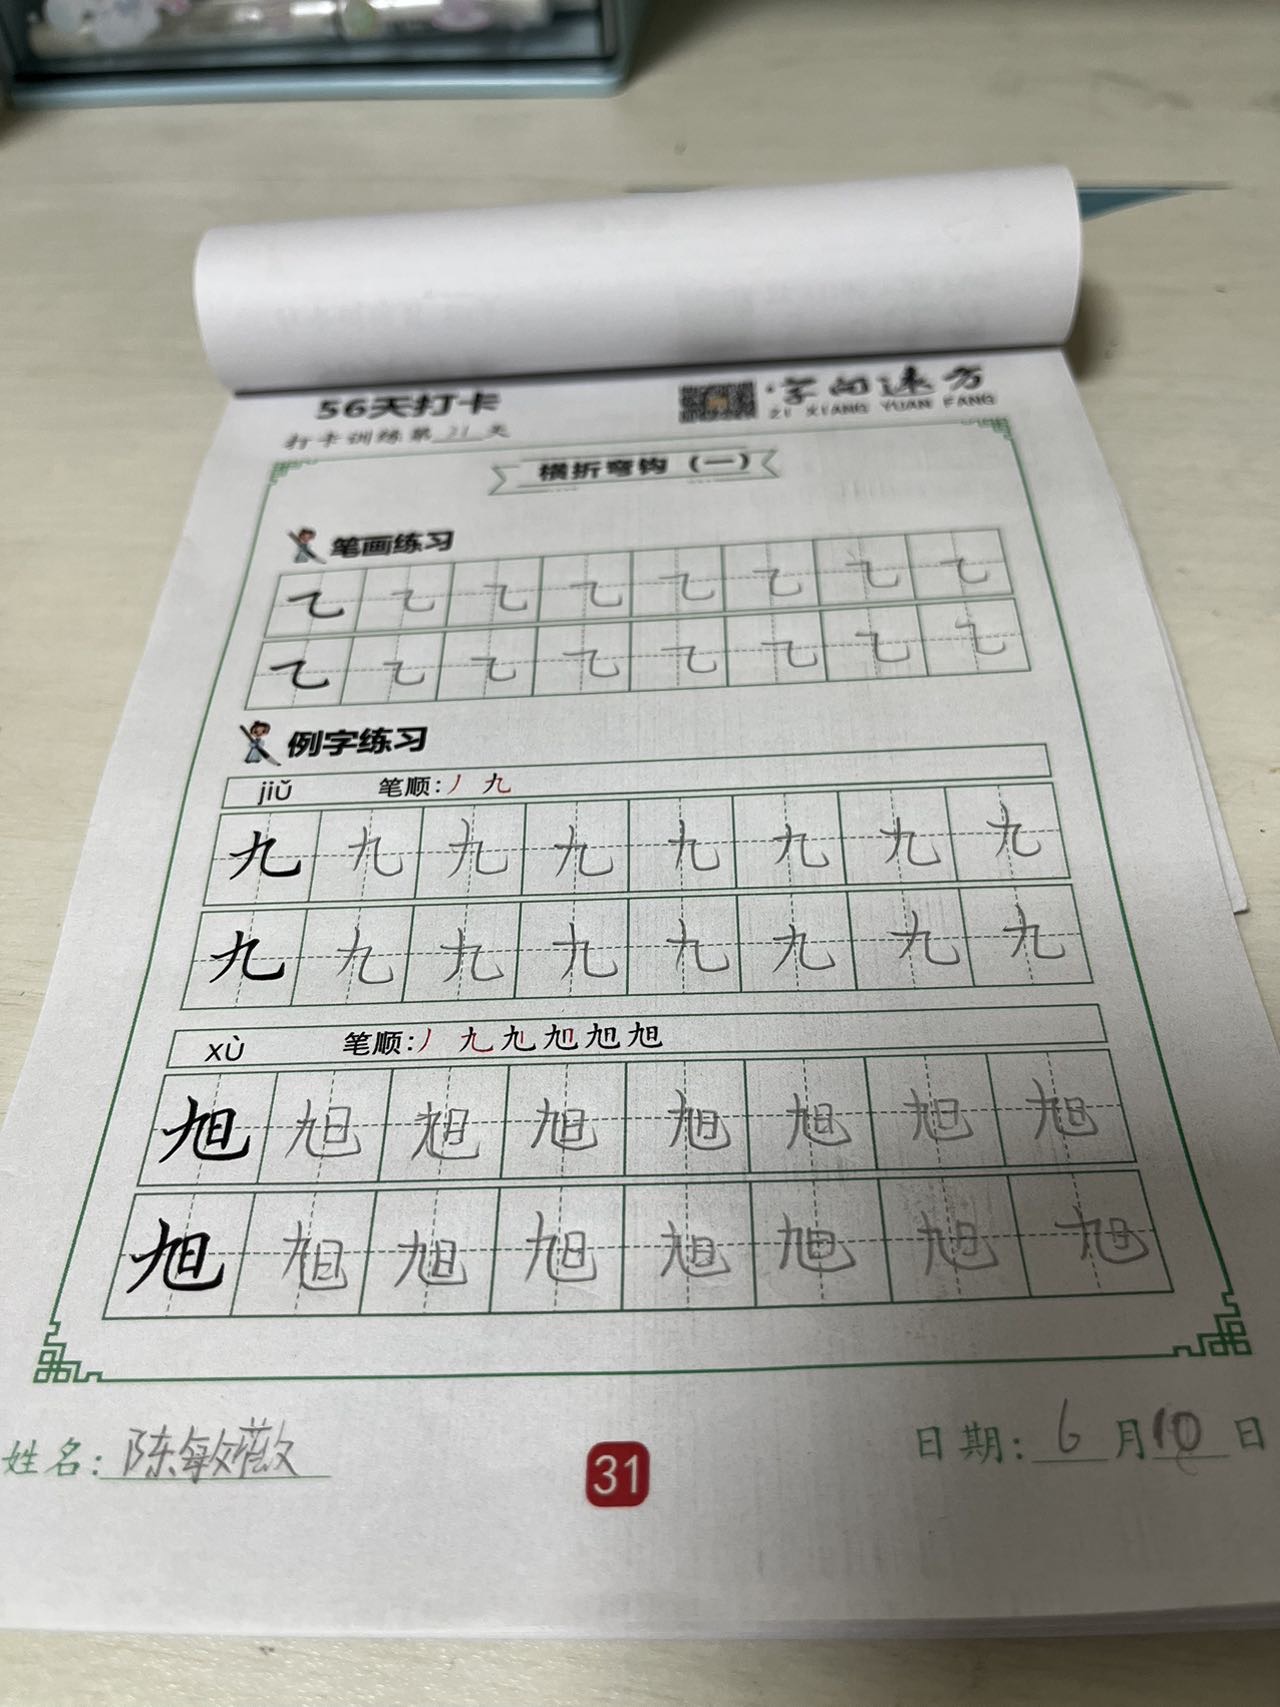 56天打卡
字间速方
ZI XIANG YUAN FANG
打卡训练第 31 天
横折弯钩（一）
笔画练习
乙 乙 乙 乙 乙 乙 乙 乙
乙 乙 乙 乙 乙 乙 乙 乙
例字练习
jiǔ 笔顺:丿 九
九 九 九 九 九 九 九 九
九 九 九 九 九 九 九 九
xù 笔顺:丿 九 旭 旭 旭 旭
旭 旭 旭 旭 旭 旭 旭 旭
旭 旭 旭 旭 旭 旭 旭 旭
姓名:陈敏薇
日期: 6 月 10 日
31